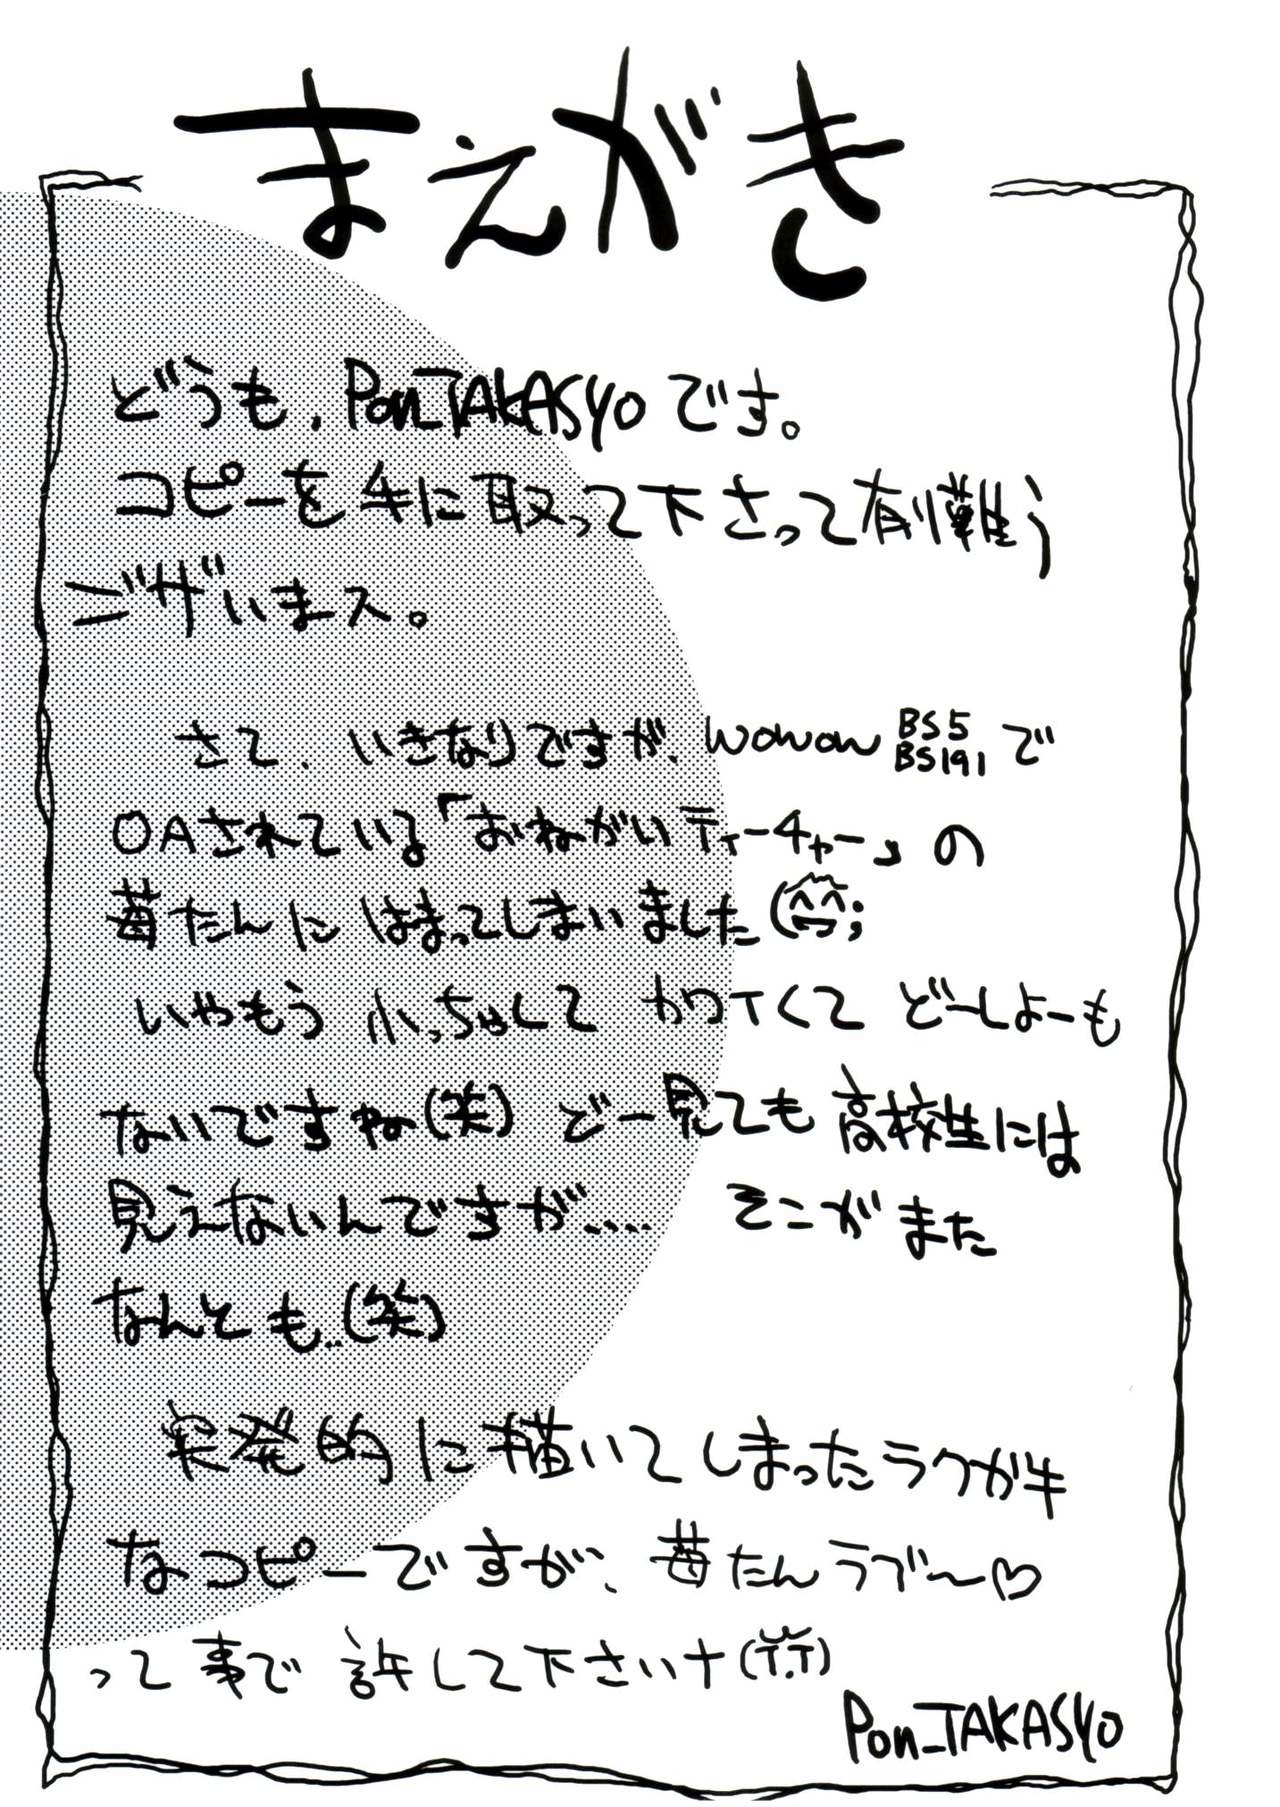 まえがき
どうも、Pon_TAKASYOです。
コピーを手に取って下さって有り難う
ございまス。
さて、いきなりですが、WOWOW BS5 BS191で
OAされている「おねがいティーチャー」の
苺たんにはまってしまいました(^^;
いやもう小っちゃくて カワイくて どーしよーも
ないですね(笑) どー見ても高校生には
見えないんですが.... そこがまた
なんとも..(笑)
突発的に描いてしまったラクガキ
なコピーですが、苺たんラブ〜♡
って事で 許して下さいナ(T.T)
Pon_TAKASYO